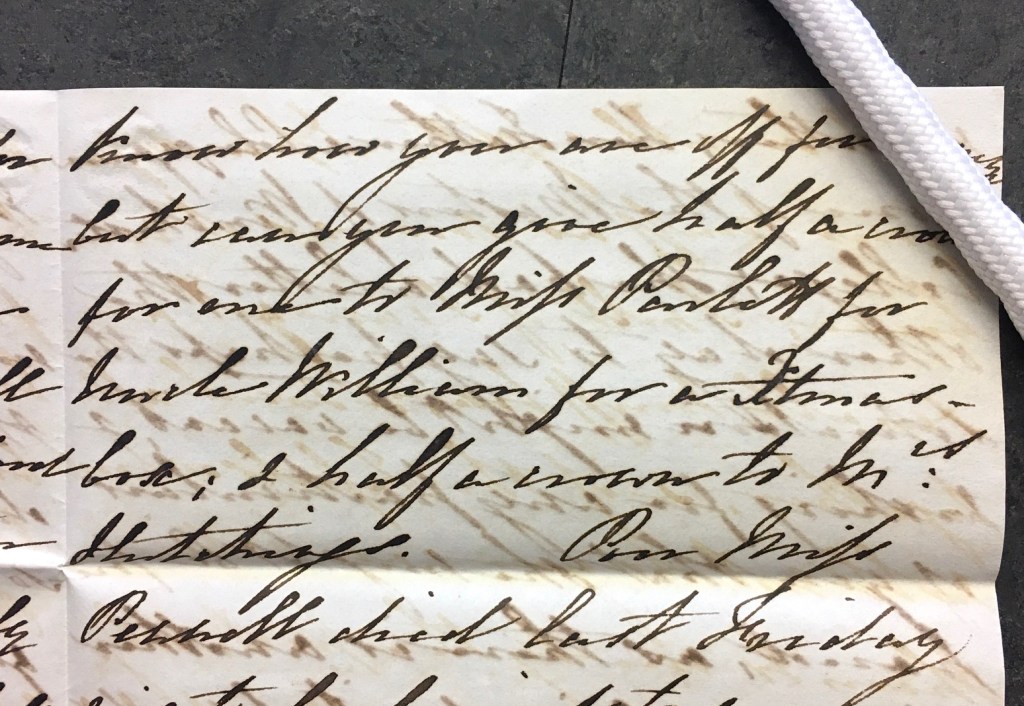 know how you are off for
but can you give half a crow
for one to Miss Parlett for
Uncle William for a Xtmas-
box; & half a crown to Mrs:
Hutchings. Poor Miss
Perrott died last Friday